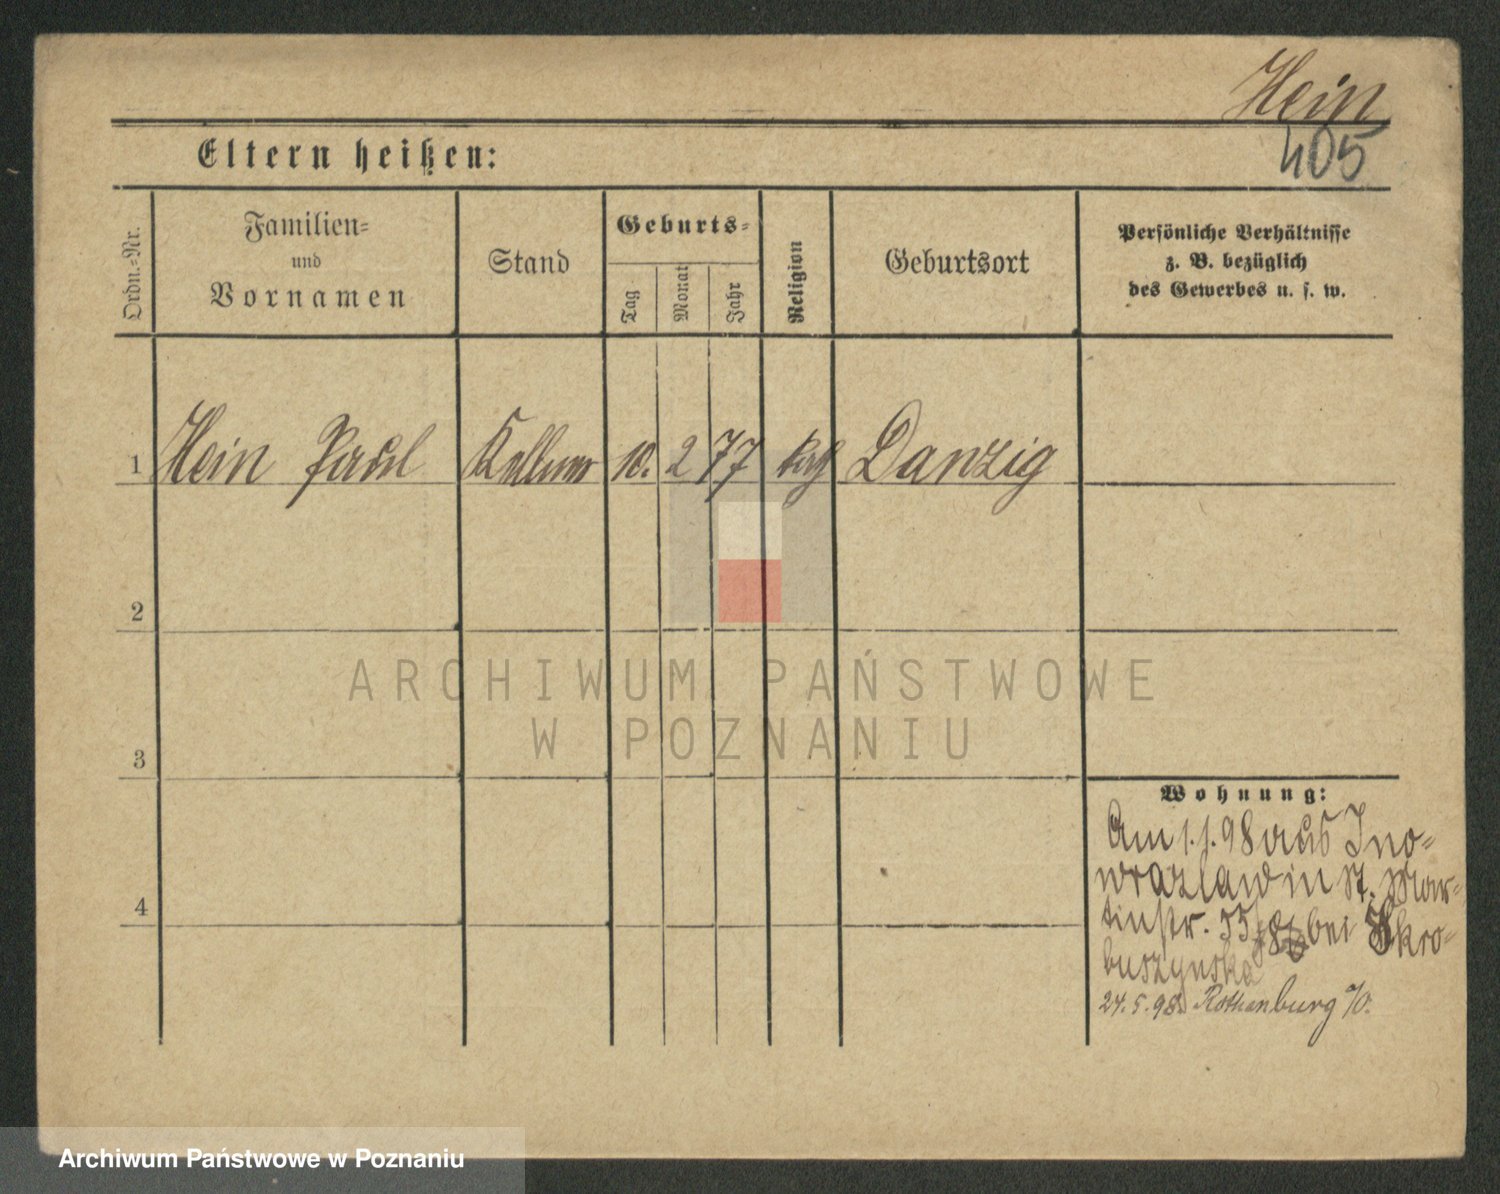 Hein
405
Eltern heißen:
Ordn.-Nr.
Familien-
und
Vornamen
Stand
Geburts-
Tag
Monat
Jahr
Religion
Geburtsort
Persönliche Verhältnisse
z. B. bezüglich
des Gewerbes u. s. w.
1 Hein Paul Kellner 10. 2 77 kath Danzig
2
3
4
Wohnung:
Am 1. 1. 98 aus Ino-
wrazlaw in St. Mar-
tinstr. 55 bei Skro-
buszynska
24. 5. 98. Rothenburg %.
ARCHIWUM PAŃSTWOWE
W POZNANIU
Archiwum Państwowe w Poznaniu